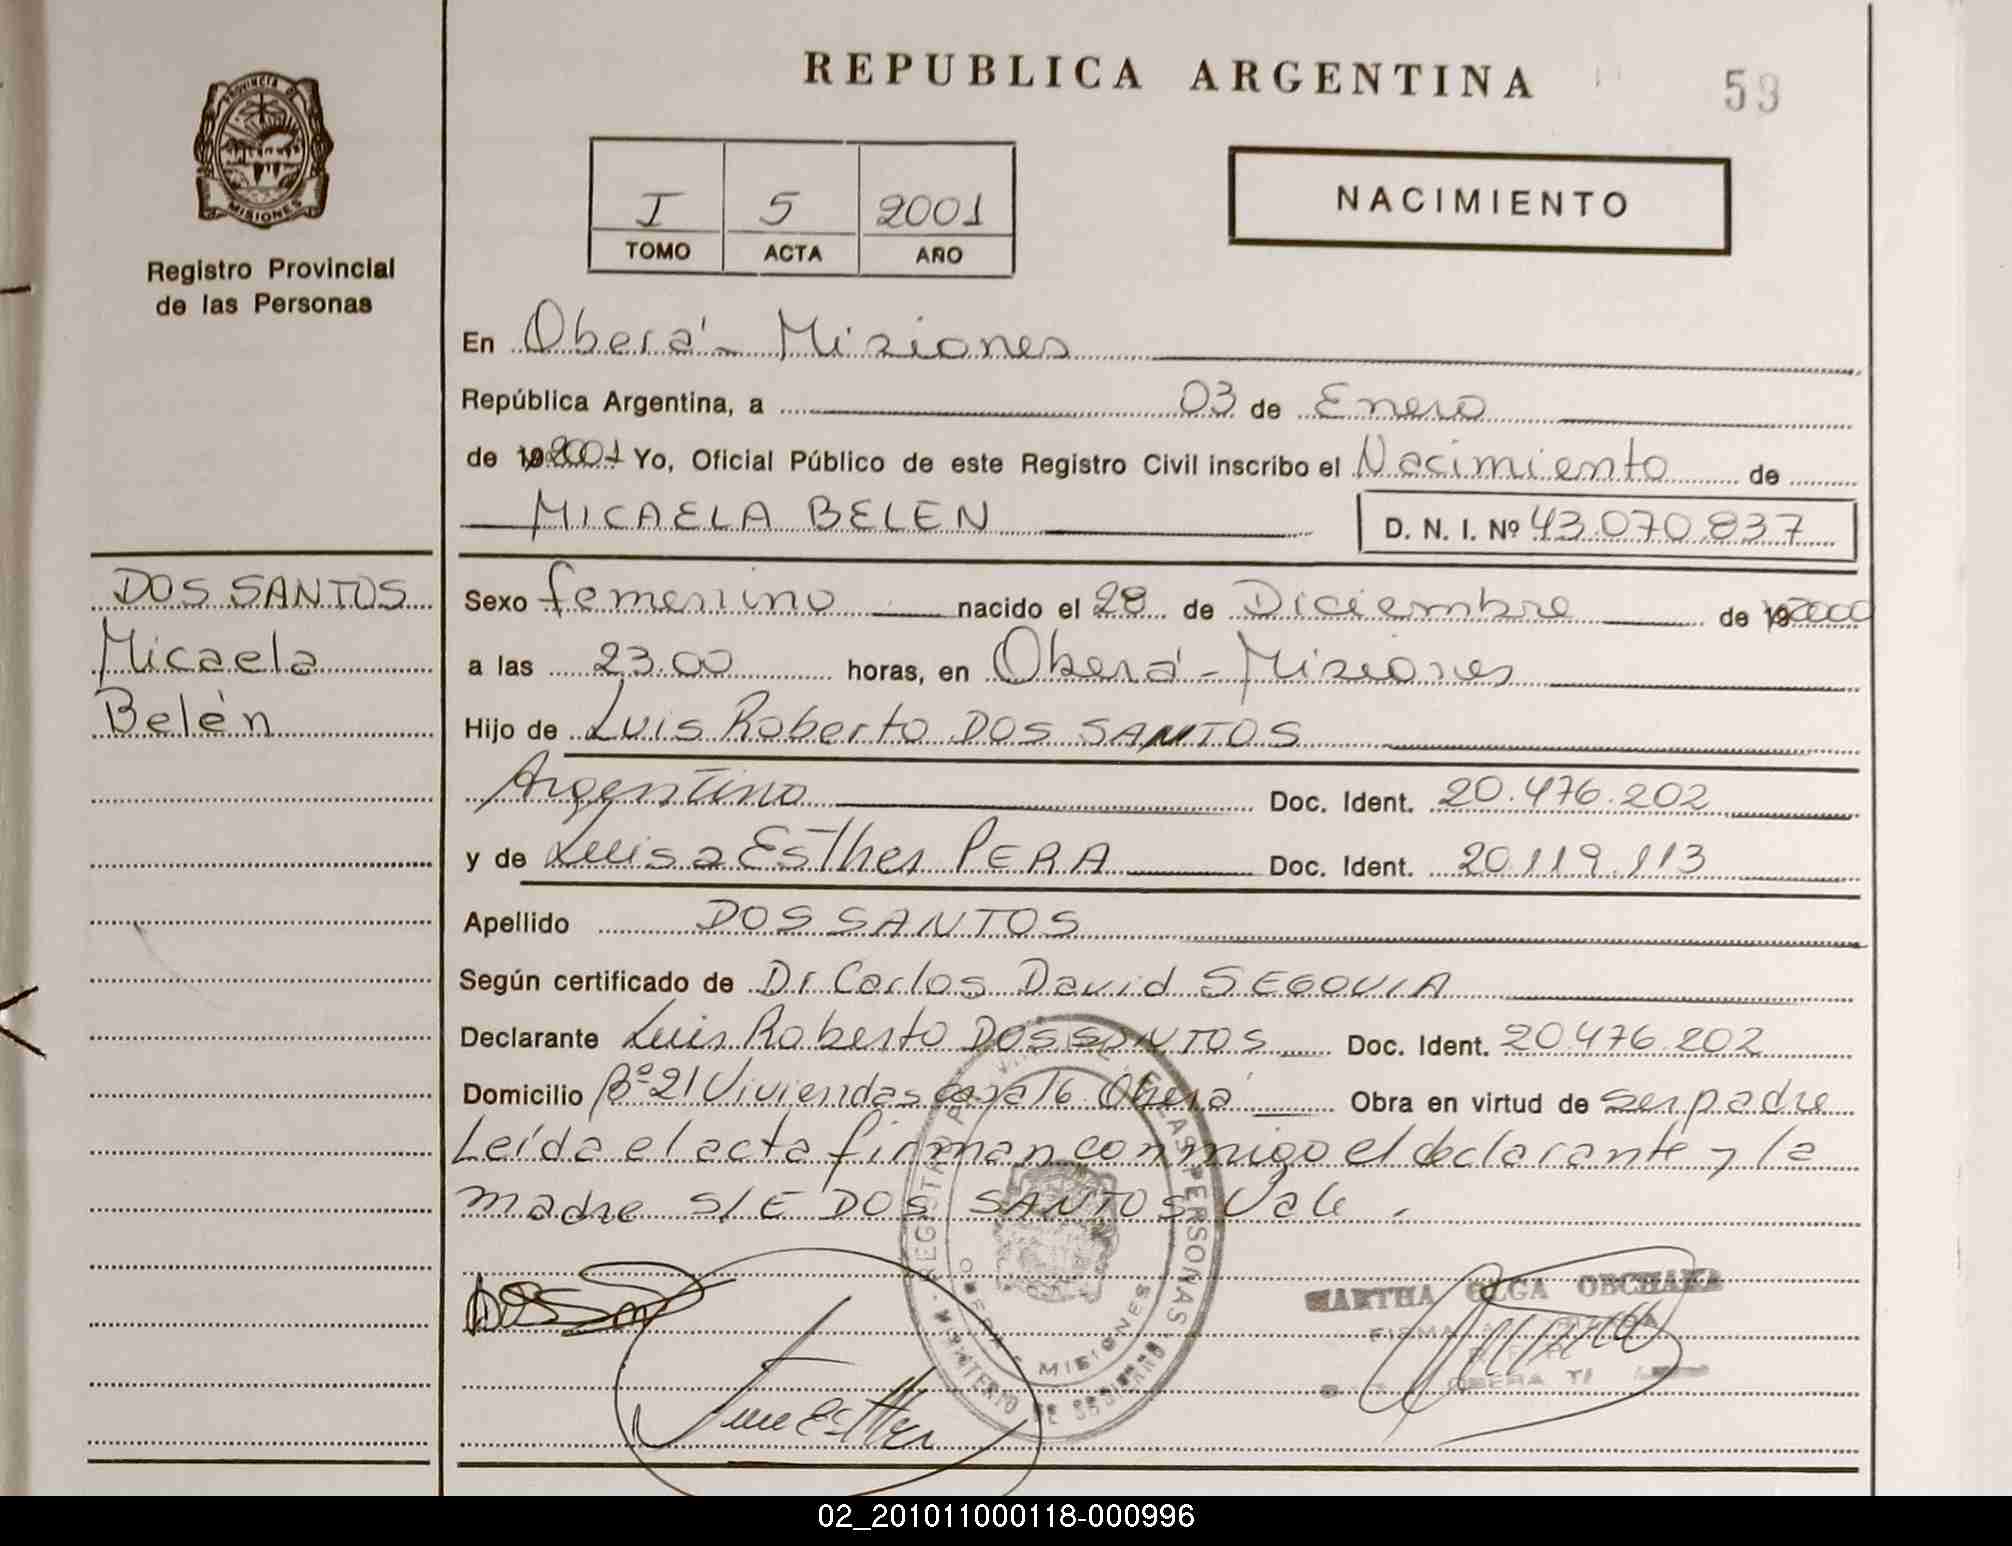 REPUBLICA ARGENTINA
59
PROVINCIA DE
MISIONES
Registro Provincial
de las Personas
I 5 2001
TOMO ACTA AÑO
NACIMIENTO
En Oberá - Misiones
República Argentina, a 03 de Enero
de 19 2001 Yo, Oficial Público de este Registro Civil inscribo el Nacimiento de
MICAELA BELEN
D. N. I. Nº 43.070.837
DOS SANTOS
Micaela
Belén
Sexo femenino nacido el 28 de Diciembre de 19 2000
a las 23.00 horas, en Oberá - Misiones
Hijo de Luis Roberto DOS SANTOS
Argentino Doc. Ident. 20.476.202
y de Luisa Esther PERA Doc. Ident. 20.119.113
Apellido DOS SANTOS
Según certificado de Dr Carlos David SEGOVIA
Declarante Luis Roberto DOS SANTOS Doc. Ident. 20.476.202
Domicilio Bº 21 Viviendas casa 16 Oberá Obra en virtud de ser padre
Leída el acta firman conmigo el declarante y la
madre S/E DOS SANTOS Vale.
REGISTRO DE LAS PERSONAS
OBERA - MISIONES
MINISTERIO DE GOBIERNO
MARTHA OLGA
FIRMA
OBERA
Esther
02_201011000118-000996